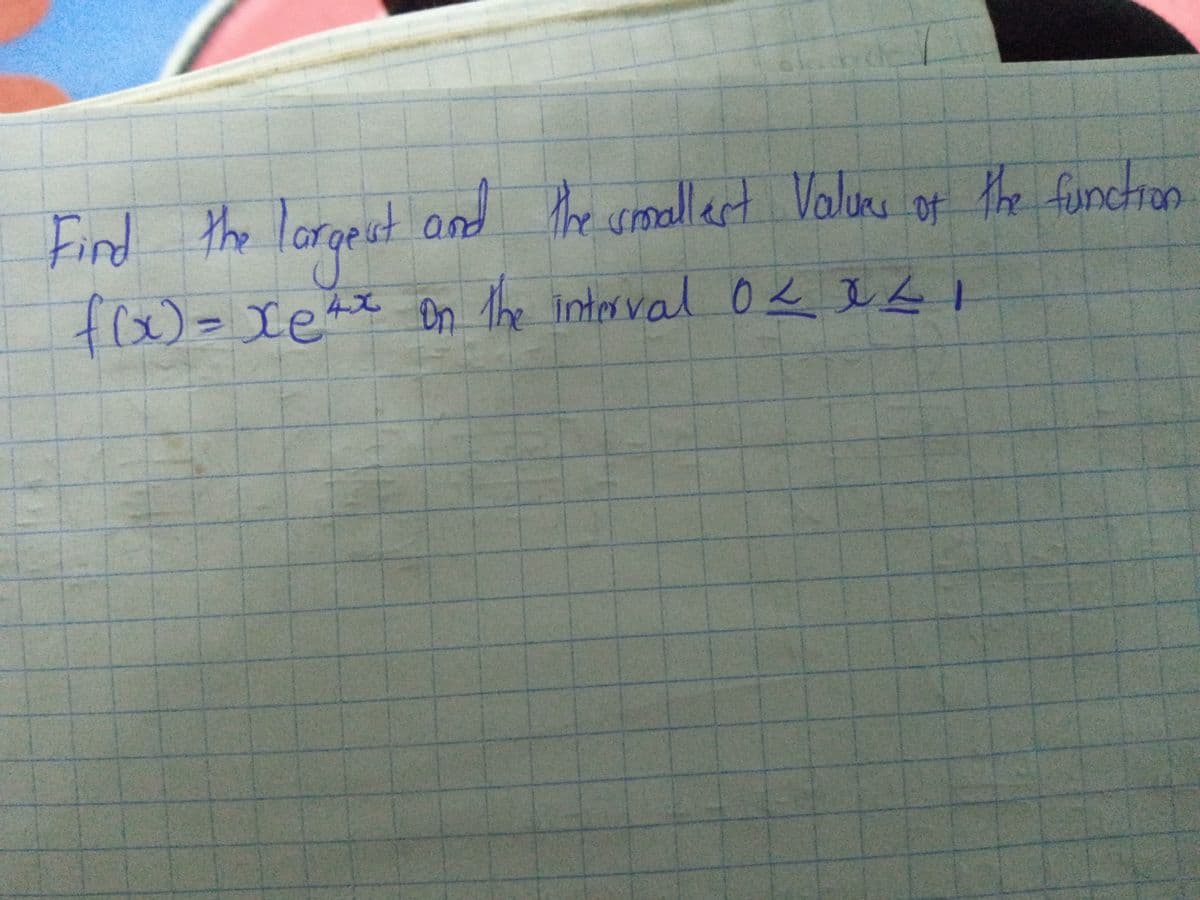 Find the largest and the smallest Values of the function
f(x) = xe^{4x} on the interval 0 ≤ x ≤ 1